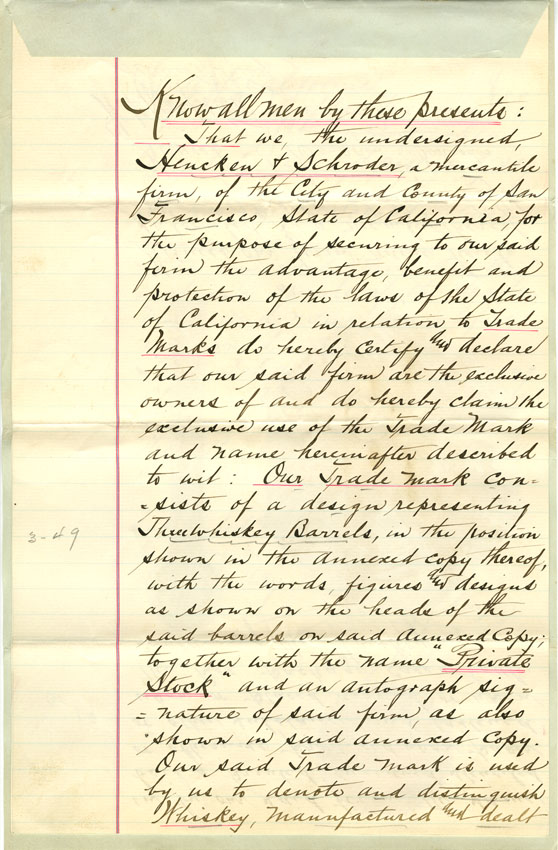 Know all men by these presents:
That we, the undersigned,
Hencken & Schroder, a mercantile
firm, of the City and County of San
Francisco, State of California, for
the purpose of securing to our said
firm the advantage, benefit and
protection of the laws of the State
of California in relation to Trade
Marks do hereby certify and declare
that our said firm are the exclusive
owners of and do hereby claim the
exclusive use of the Trade Mark
and name hereinafter described
to wit: Our Trade mark con=
=sists of a design representing
Three Whiskey Barrels, in the position
shown in the annexed copy thereof,
3-49
with the words, figures and designs
as shown on the heads of the
said barrels on said annexed Copy;
together with the name "Private
Stock" and an autograph sig=
=nature of said firm, as also
shown in said annexed Copy.
Our said Trade mark is used
by us to denote and distinguish
Whiskey, manufactured and dealt